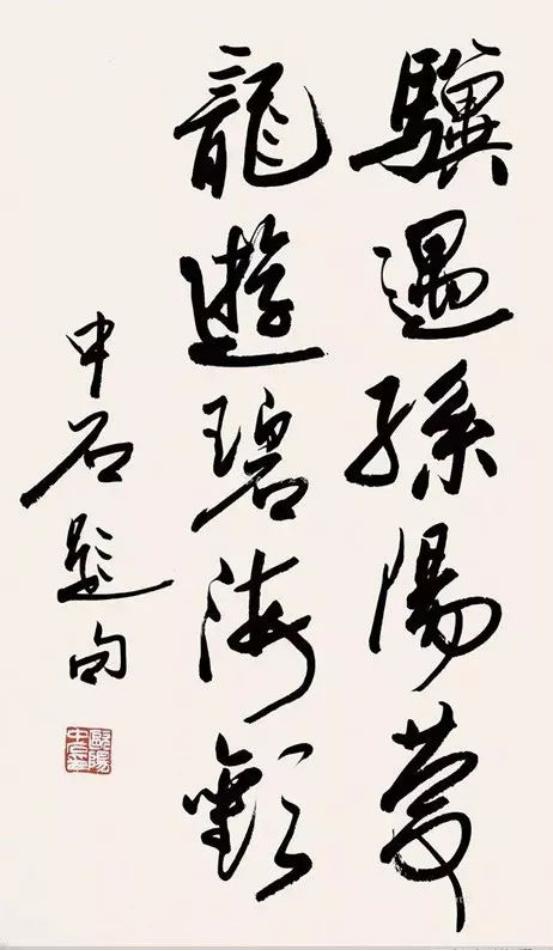 驥遇孫陽
龍遊碧海歡
中石題句
歐陽
中石